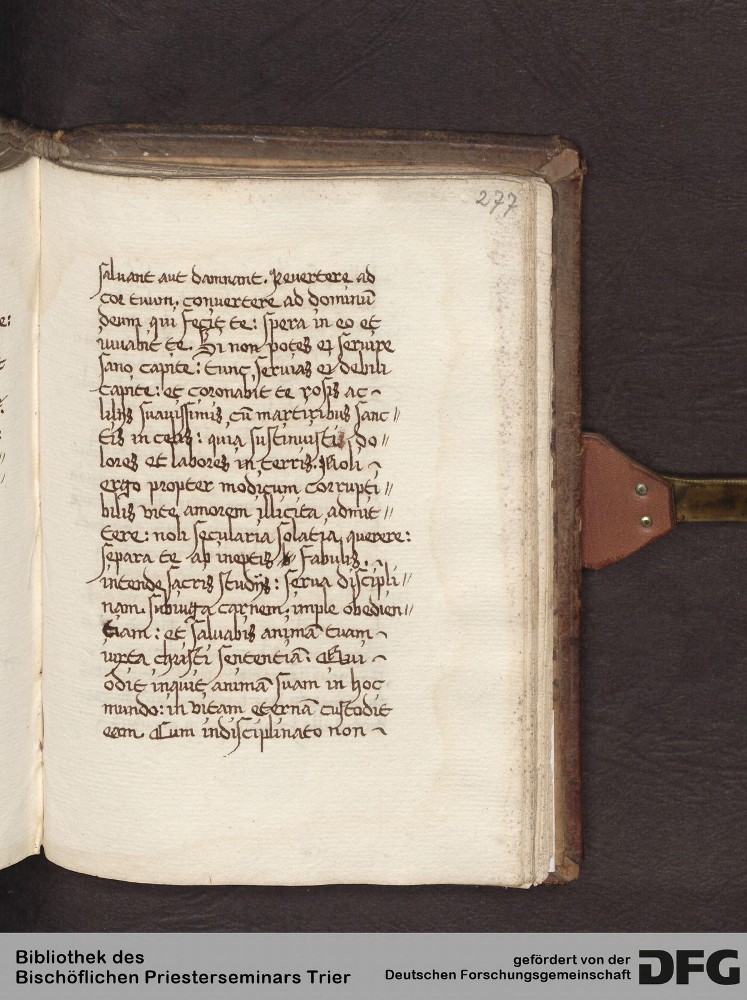 277
saluant aut damnant. Reuertere ad
cor tuum, conuertere ad dominū
deum qui fecit te: spera in eo et
iuuabit te. Si non potes ei seruire
sano capite: tunc seruias ei debili
capite: et coronabit te rosis ac
lilijs suauissimis cū martiribus sanc//
tis in celis: quia sustinuisti do//
lores et labores in terris. Noli
ergo propter modicum corrupti//
bilis vite amorem illicita admit//
tere: noli secularia solatia querere:
separa te ab ineptis fabulis.
intende sacris studijs: serua discipli//
nam, subiuga carnem, imple obedien//
tiam: et saluabis animā tuam
iuxta christi sententiā: Qui
odit inquit animā suam in hoc
mundo: in vitam eternā custodit
eam. Cum indisciplinato non
Bibliothek des
Bischöflichen Priesterseminars Trier
gefördert von der
Deutschen Forschungsgemeinschaft
DFG